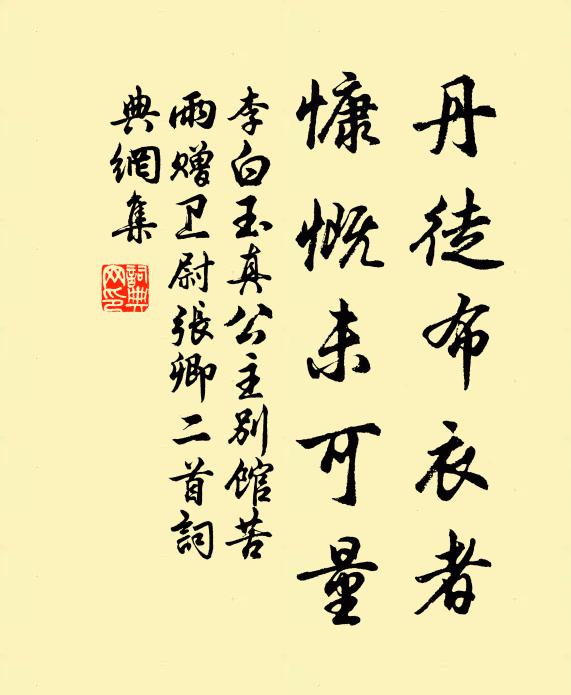 丹徒布衣者
慷慨未可量
李白玉真公主別館苦
雨贈卫尉張卿二首詞
典網集
詞典网印